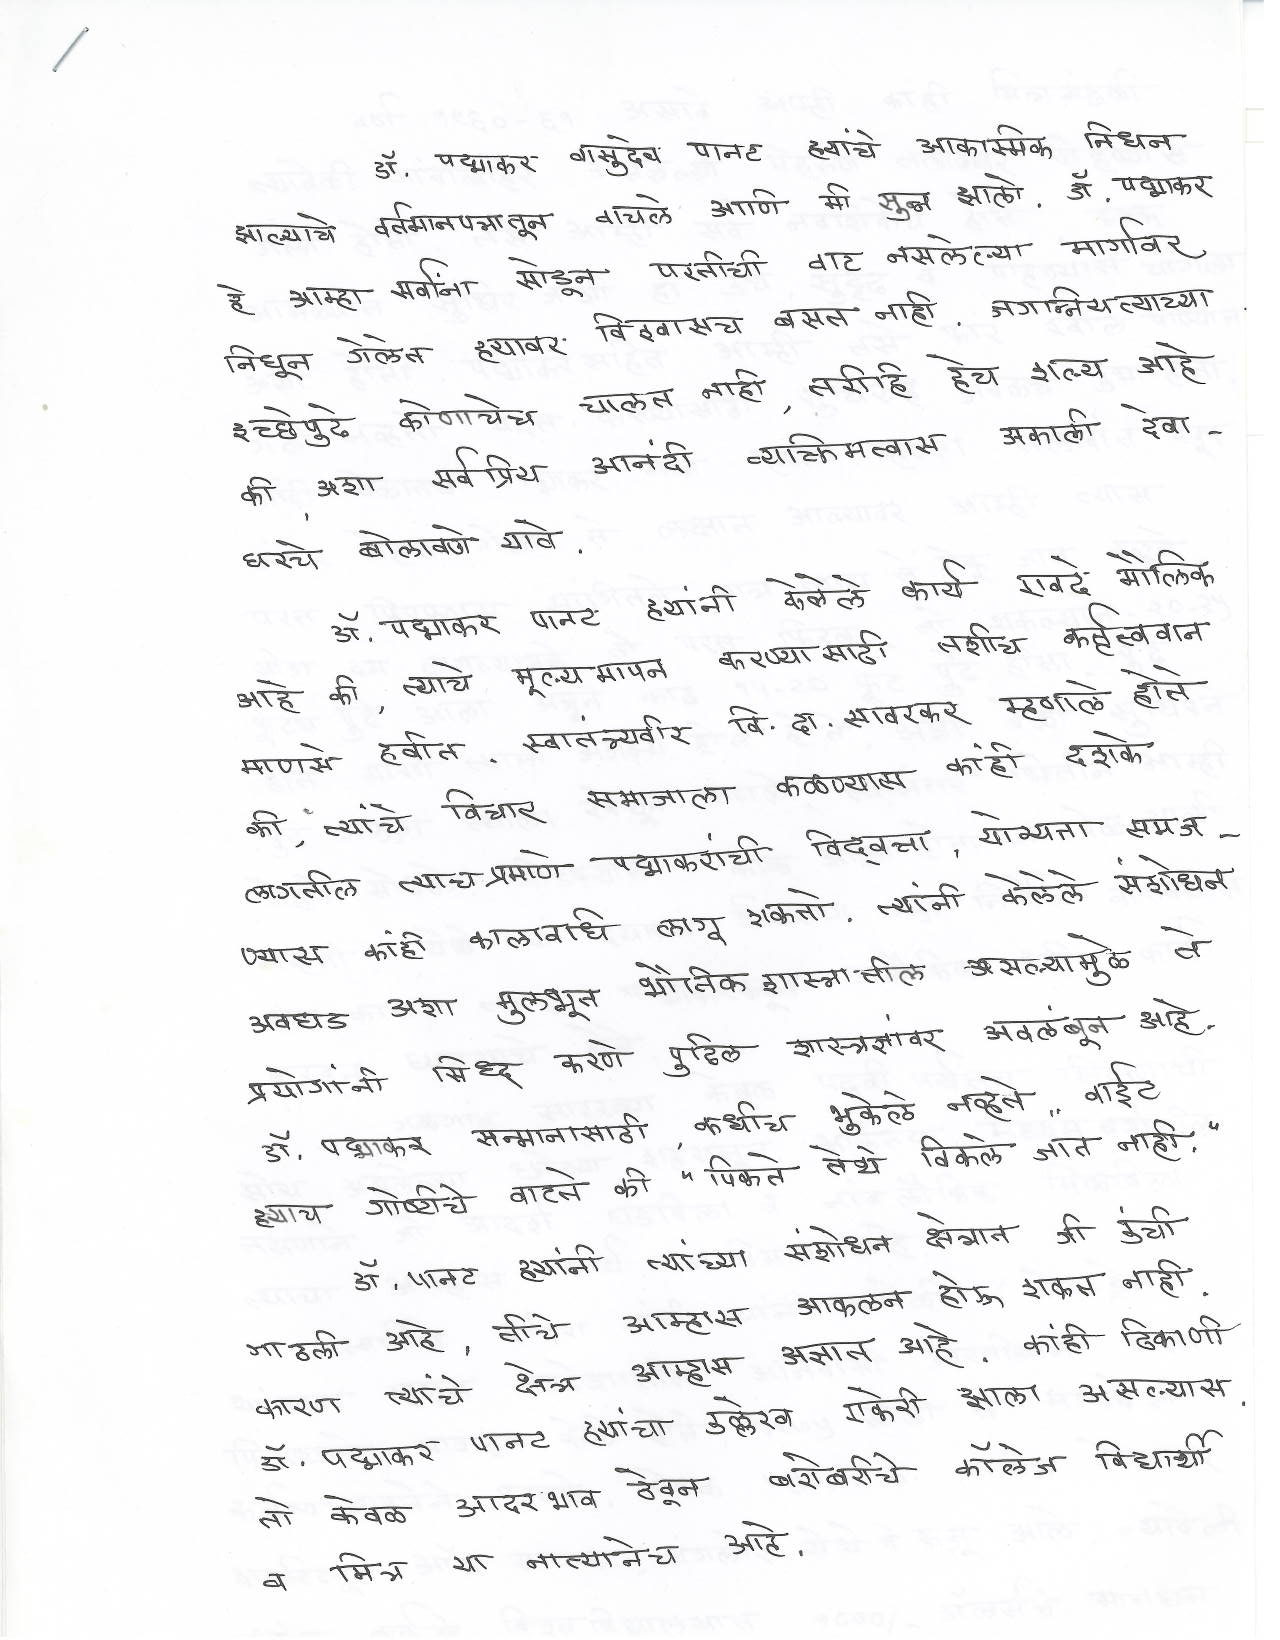 डॉ. पद्माकर वासुदेव पानट ह्यांचे आकास्मिक निधन
झाल्याचे वर्तमानपत्रातून वाचले आणि मी सुन्न झालो. डॉ. पद्माकर
हे आम्हा सर्वांना सोडून परतीची वाट नसलेल्या मार्गावर
निघून गेलेत ह्यावर विश्वासच बसत नाही. जगन्नियत्याच्या
इच्छेपुढे कोणाचेच चालत नाही, तरीहि हेच शल्य आहे
की, अशा सर्वप्रिय आनंदी व्यक्तिमत्वास अकाली देवा-
घरचे बोलावणे यावे.
डॉ. पद्माकर पानट ह्यांनी केलेले कार्य एवढे मौलिक
आहे की, त्याचे मूल्यमापन करण्यासाठी तशीच कर्तृत्ववान
माणसे हवीत. स्वातंत्र्यवीर वि. दा. सावरकर म्हणाले होते
की, त्यांचे विचार समाजाला कळण्यास कांही दशके
लागतील त्याचप्रमाणे पद्माकरांची विद्वत्ता, योग्यता समज-
ण्यास कांही कालावधि लागू शकतो. त्यांनी केलेले संशोधन
अवघड अशा मुलभूत भौतिकशास्त्रातील असल्यामुळे ते
प्रयोगांनी सिध्द करणे पुढिल शास्त्रज्ञांवर अवलंबून आहे.
डॉ. पद्माकर सन्मानासाठी कधीच भुकेले नव्हते. वाईट
ह्याच गोष्टीचे वाटते की "पिकते तेथे विकले जात नाही."
डॉ. पानट ह्यांनी त्यांच्या संशोधन क्षेत्रात जी उंची
गाठली आहे, तीचे आम्हास आकलन होऊ शकत नाही.
कारण त्यांचे क्षेत्र आम्हास अज्ञात आहे. कांही ठिकाणी
डॉ. पद्माकर पानट ह्यांचा उल्लेख ऐकेरी झाला असल्यास.
तो केवळ आदरभाव ठेवून बरोबरीचे कॉलेज विद्यार्थी
व मित्र या नात्यानेच आहे.